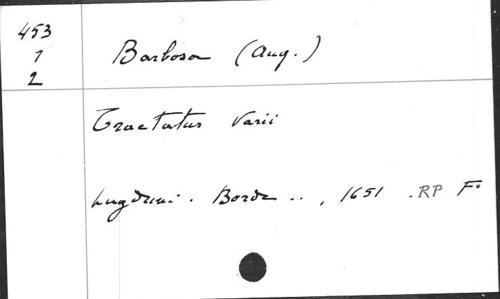 453
1
2
Barbosa (Aug.)
Tractatus varii
Lugduni. Borde .. , 1651 . RP Fº